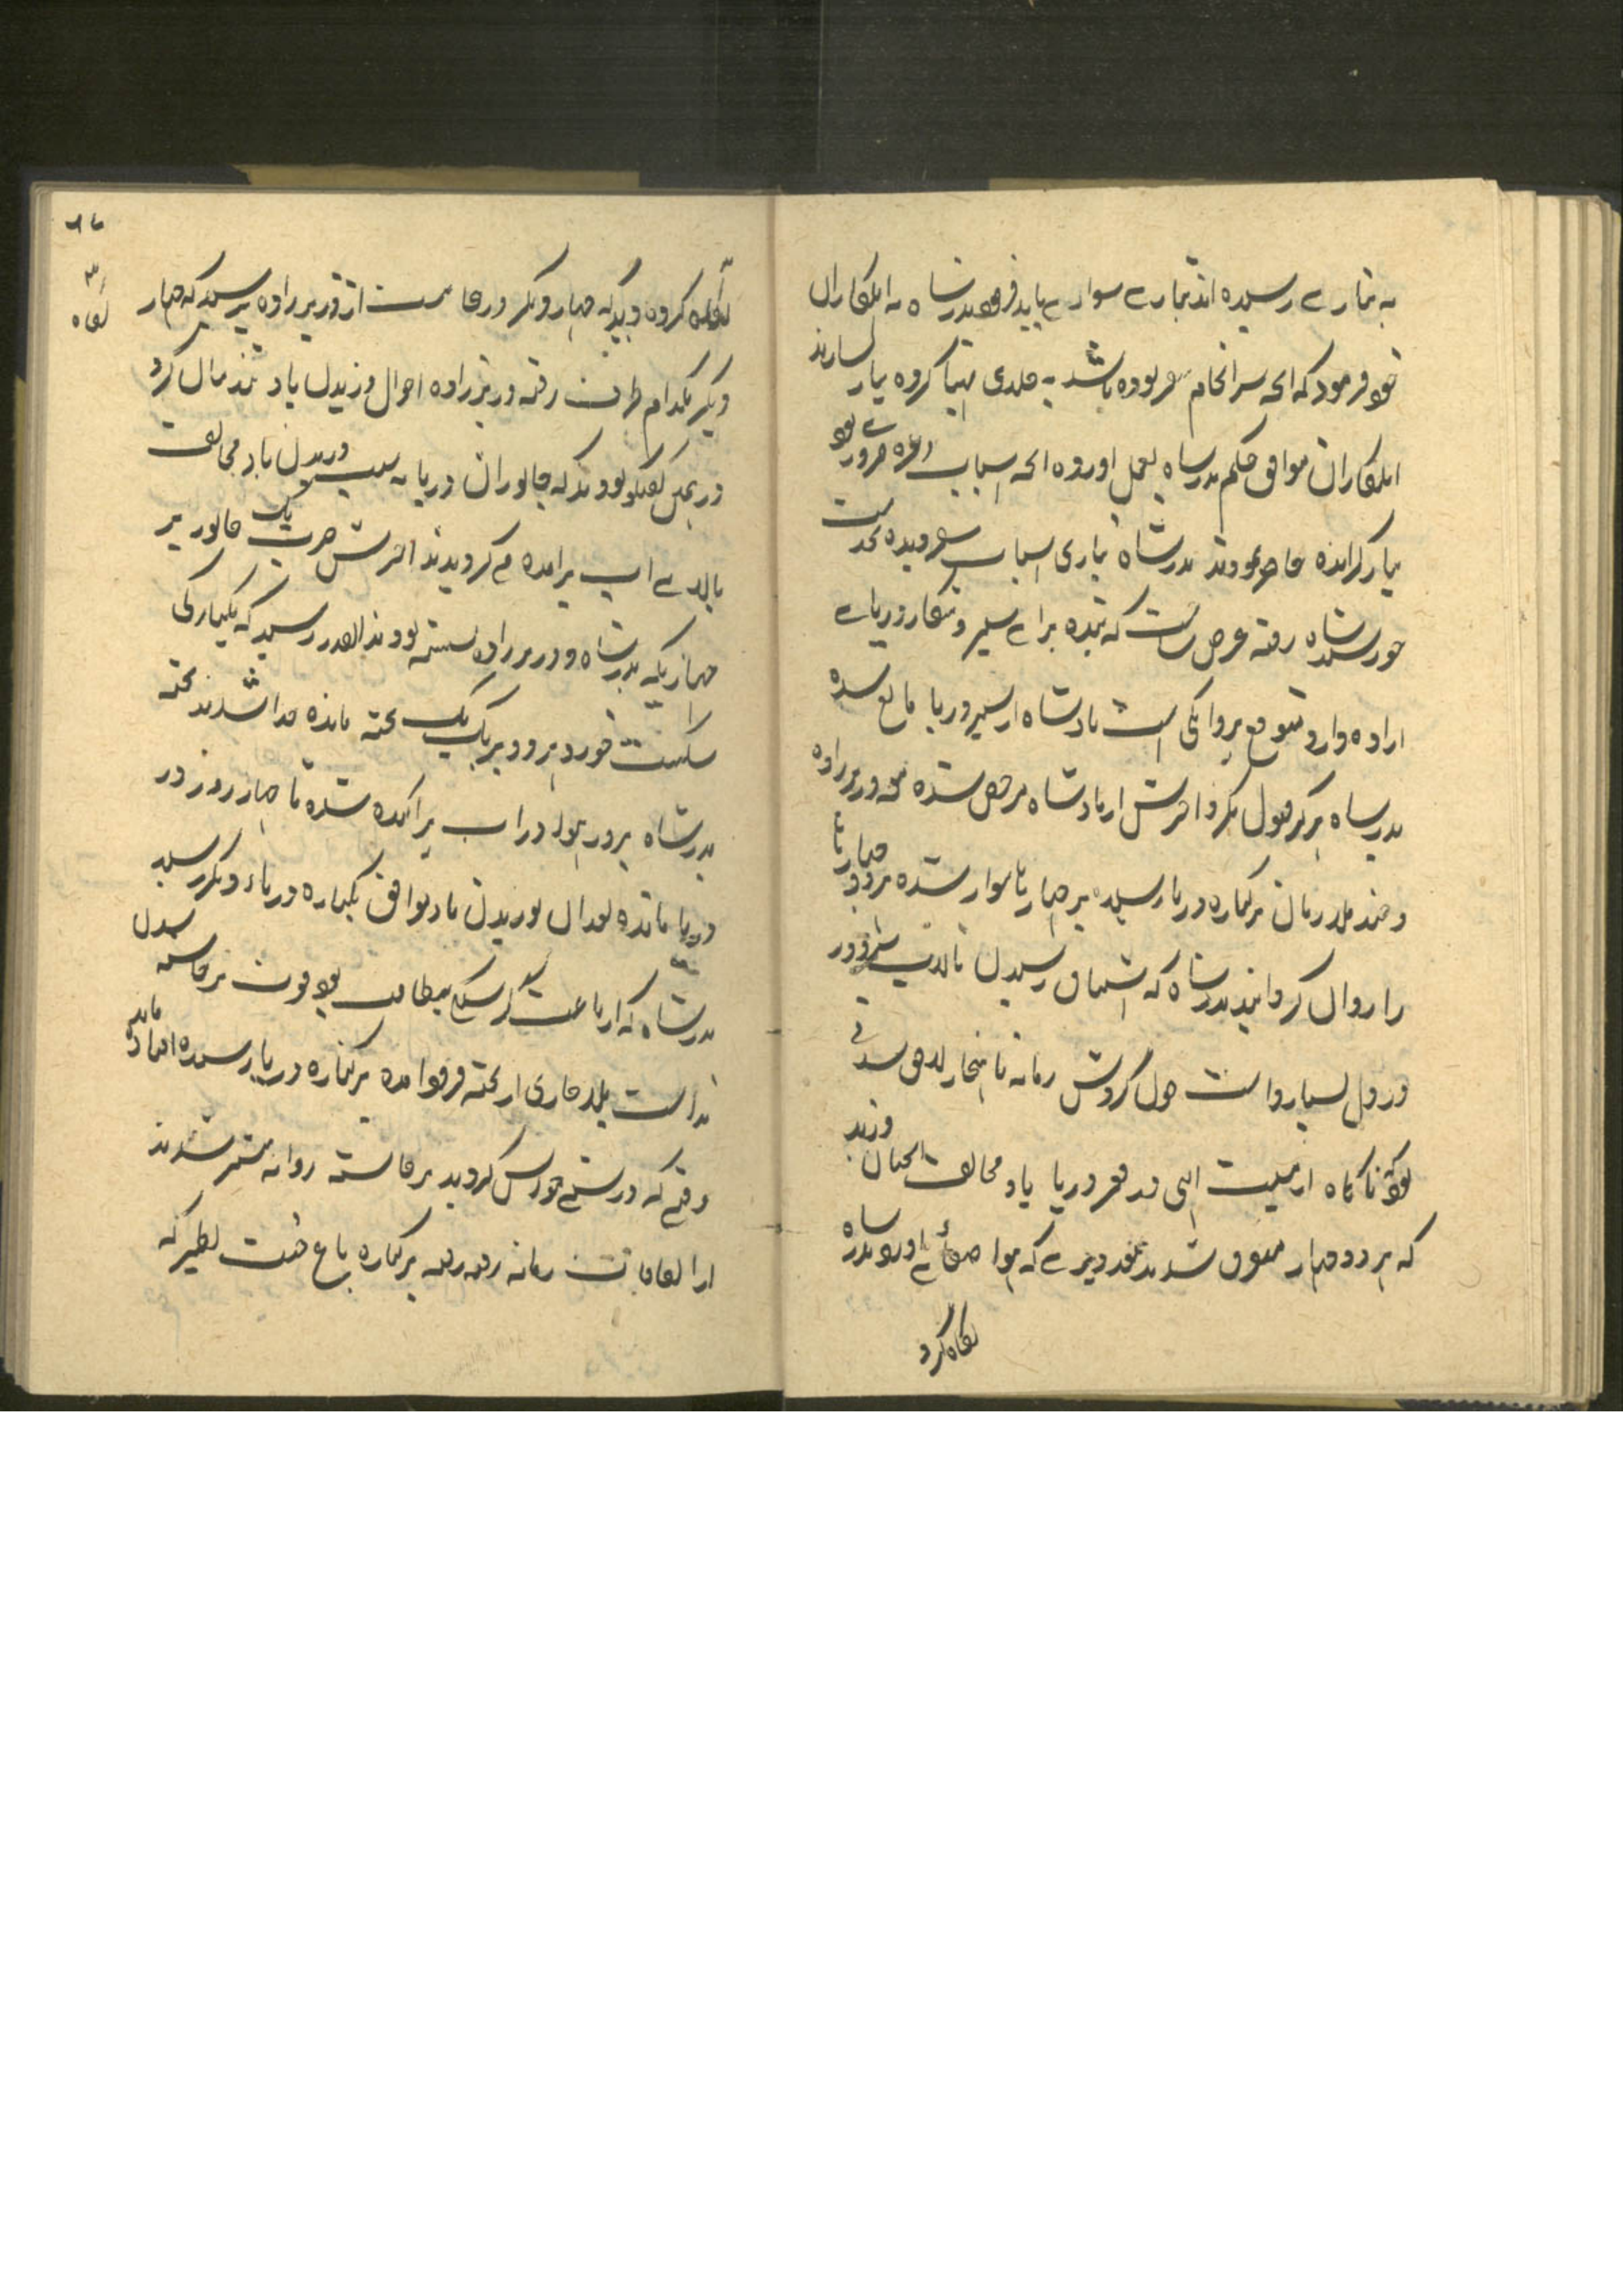 به تیاری رسیده اند تیاری سواری باید فرمود بدرشاه به اهلکاران
خود فرمود که انچه سرانجام سفر بوده باشد به جلدی مهیا کرده تیار سازند
اهلکاران موافق حکم بدرشاه بعمل اورده انچه اسباب وغیره ضرور بود
تیار کرانده حاضر نمودند بدرشاه تیاری اسباب سفر دیده بخدمت
خورشید شاه رفته عرض ساخت که بنده برای سیر و شکار دریای
اراده دارد متوقع پروانگی است بادشاه از سیر دریا مانع شده
بدرشاه هرگز قبول نکرد اخرش از بادشاه مرخص شده مع وزیرزاده
و چند ملازمان بر کناره دریا رسیده بر جهازها سوار شده هر دو جهازها
را روان کردانید بدرشاه که اشتیاق رسیدن
در دل بسیار داشت چون گردش زمانه ناهنجار لاحق شدنی
بود ناگاه از مشیت الهی در قعر دریا باد مخالف انچنان وزید
که هر دو جهاز متفرق شدند بعد دیری که هوا صفائی اورد بدرشاه
نگاه کرد
نگاه کرده دید که جهاز دیگر ورجا نیست از وزیرزاده پرسید که جهاز
دیگر بکدام طرف رفته وزیرزاده احوال وزیدن باد تند بیان کرد
در همین گفتگو بودند که جانوران دریا به سبب وزیدن باد مخالف
بالای اب برامده می گردیدند اخرش ضرب یک جانور بر
جهازیکه بدرشاه و وزیرزاده نشسته بودند انقدر رسید که یکبارگی
شکست خورد هر دو بر یک یک تخته مانده جدا شدند تخته
بدرشاه بر روی اب برامده شده تا چهار روز در
دریا مانده بعد ازان بوزیدن باد موافق بکناره دریاء دیگر رسید
بدرشاه که از باعث گرسنگی بیطاقت بود قوت برخاسته شدن
نداشت بلاچاری از تخته فرود امده بر کناره دریا رسیده افتاده ماند
وقتیکه درستی هوش گردید برخاسته روانه پیشتر شدند
از اتفاقات زمانه رفته رفته بر کناره باغ جنت نظیر که